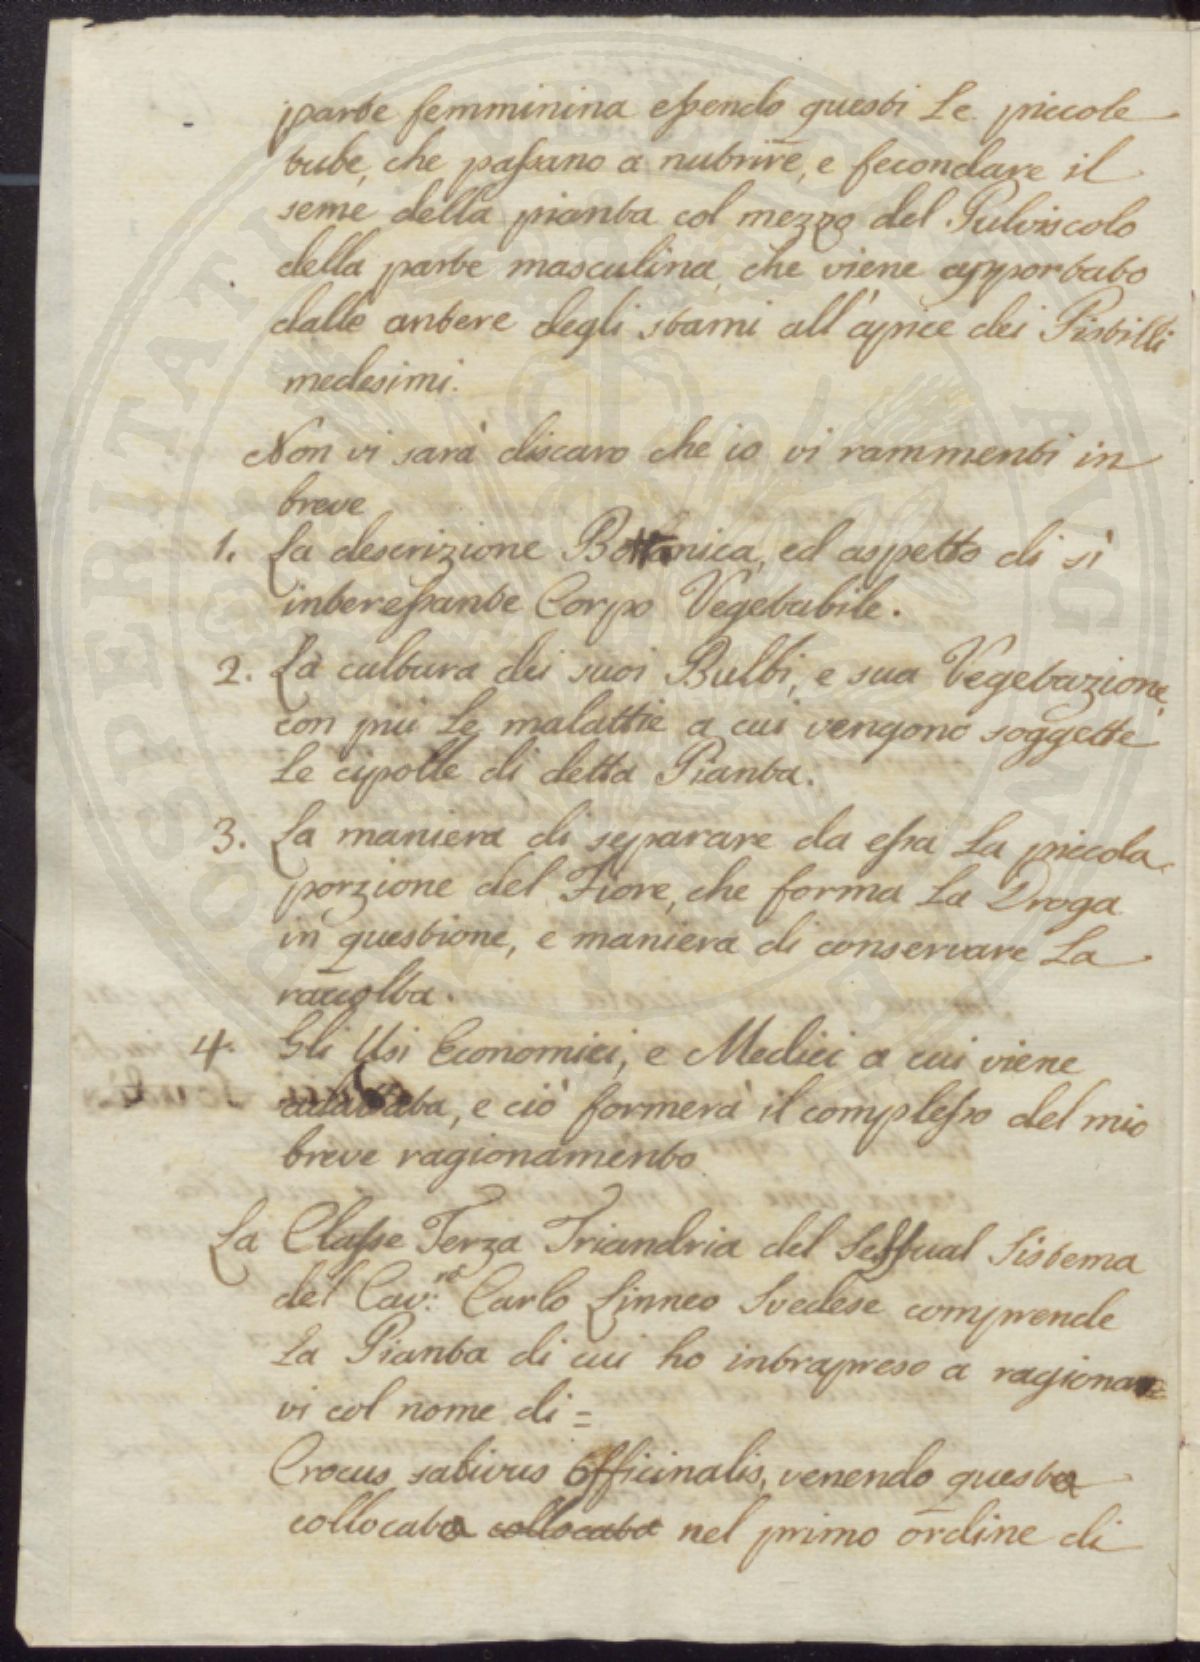 parte femminina essendo questi Le piccole
tube, che passano a nutrire, e fecondare il
seme della pianta col mezzo del Pulviscolo
della parte masculina, che viene apportato
dalle antere degli stami all'apice dei Pistilli
medesimi.
Non vi sarà discaro che io vi rammenti in
breve
1. La descrizione Bottanica, ed aspetto di sì
interessante Corpo Vegetabile.
2. La cultura dei suoi Bulbi, e sua Vegetazione,
con più Le malattie a cui vengono soggette
Le cipolle di detta Pianta.
3. La maniera di separare da essa La piccola
porzione del Fiore, che forma La Droga
in questione, e maniera di conservare La
raccolta.
4. Gli Usi Economici, e Medici a cui viene
adattata, e ciò formerà il complesso del mio
breve ragionamento
La Classe Terza Triandria del Sessual Sistema
del Cav.re Carlo Linneo Svedese comprende
La Pianta di cui ho intrapreso a ragionar=
vi col nome di=
Crocus sativus Officinalis, venendo questa
collocata collocata nel primo ordine di